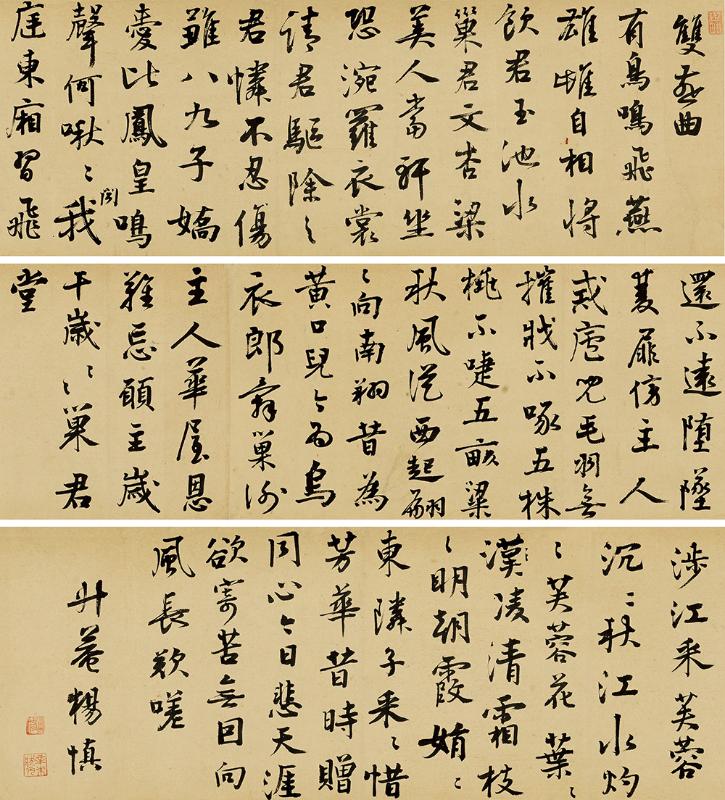 雙燕曲
有鳥鳴飛燕
雄雌自相將
飲君玉池水
巢君文杏梁
美人當軒坐
恐涴羅衣裳
請君驅除〻
君憐不忍傷
八九子嬌
比鳳皇鳴
聲何啾〻我
庭東廂習飛
還不遠墮墜
扉傍主人
毛羽無
摧戕不啄五株
桃不唼五畝粱
秋風從西起翩
〻向南翔昔為
黃口兒今為烏
衣郎辭巢謝
主人華屋恩
難忘願主歲
千歲〻巢君
堂
涉江采芙蓉
沉〻秋江水灼
〻芙蓉花葉〻
凌清霜枝
〻明朝霞娟〻
東隣子采〻惜
芳華昔時贈
同心今日悲天涯
欲寄苦無因向
風長歎嗟
升菴楊慎